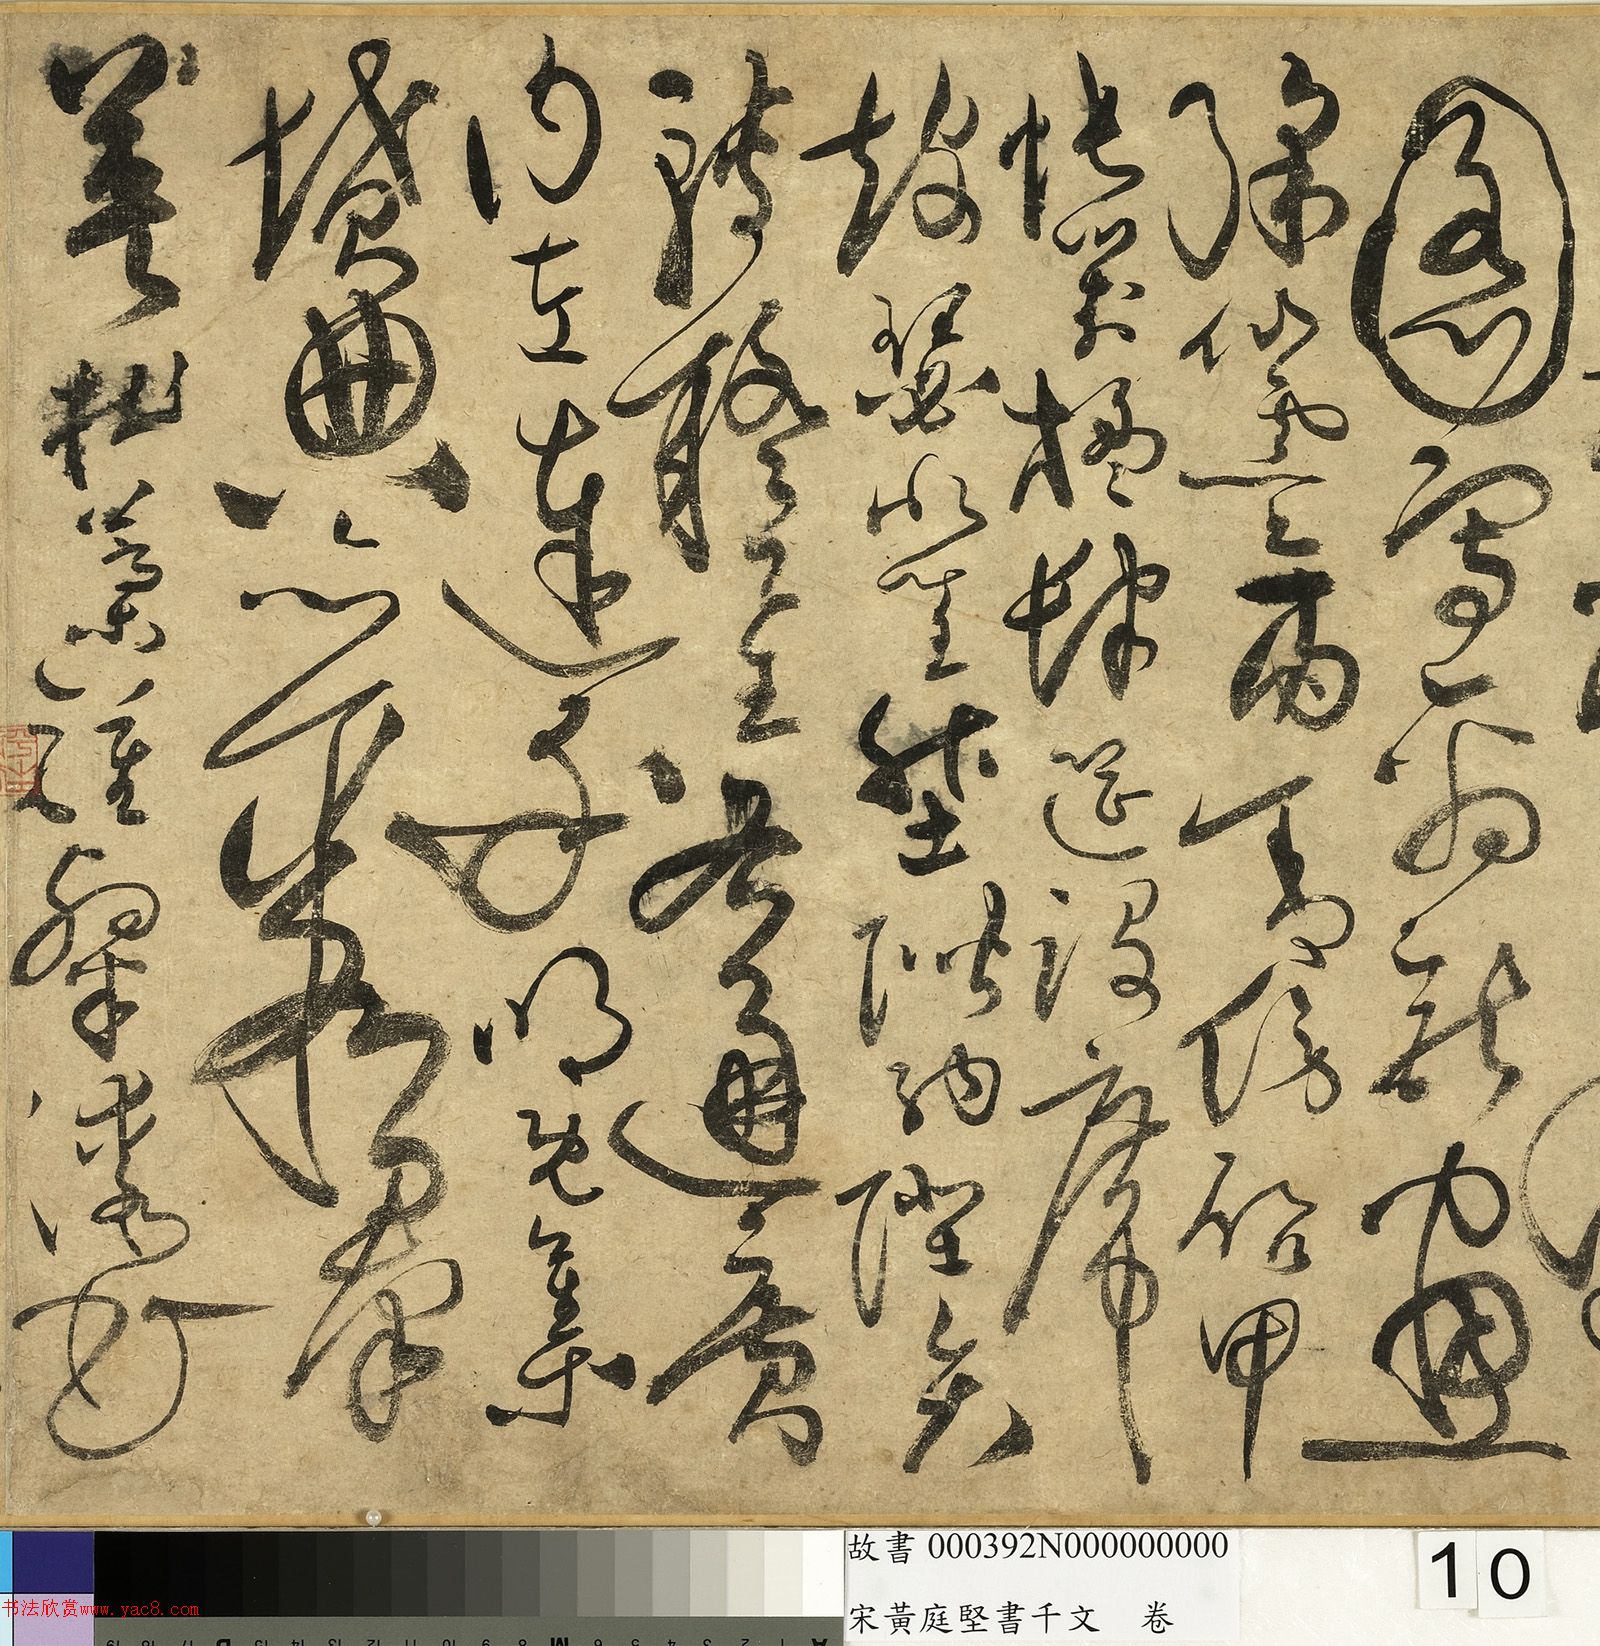 圖寫禽獸畫
綵仙靈丙舍傍啟甲
帳對楹肆筵設席
鼓瑟吹笙陞階納陛弁
轉疑星右通廣
內左達承明既集
墳典亦聚群
英杜藁鍾隸漆書
故書 000392N000000000
宋黃庭堅書千文 卷
10
书法欣赏www.yac8.com